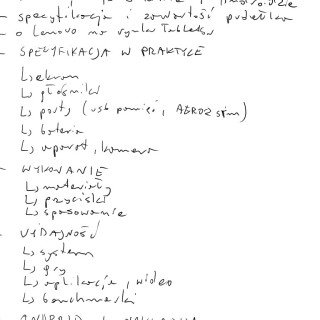 - specyfikacja i zawartość pudełka
- o Lenovo ma wysyp Tabletów
- SPECYFIKACJA W PRAKTYCE
↳ ekran
↳ głośniki
↳ porty (usb pamięć, AERO2 sim)
↳ bateria
↳ aparat, kamera
- WYKONANIE
↳ materiały
↳ przyciski
↳ spasowanie
- WYDAJNOŚĆ
↳ system
↳ gry
↳ aplikacje, wideo
↳ benchmarki